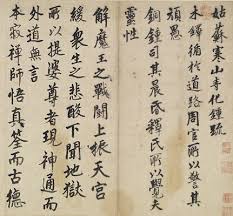 姑蘇寒山寺化鐘疏
木鐸徇於道路周官所以警其
頑愚
銅鍾司其晨昏釋氏所以覺夫
靈性
解魔王之戰鬪上振天宮
緩衆生之悲酸下聞地獄
所以提婆尊者現神通而
外道無言
本寂禪師悟真筌而古德